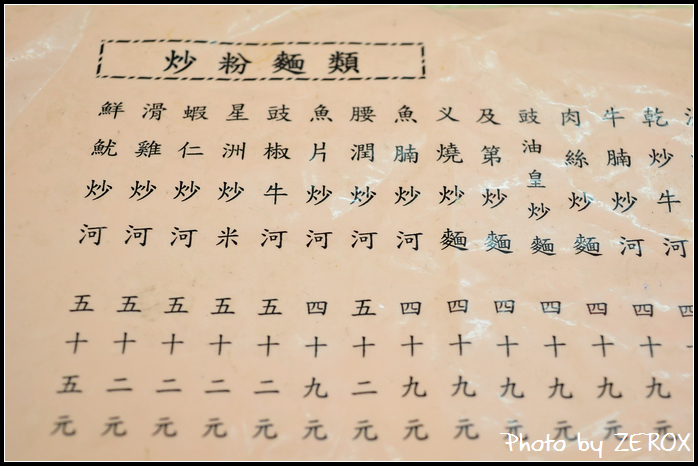 炒粉麵類
乾炒牛河
牛腩炒河 四十九元
肉絲炒麵 四十九元
豉油皇炒麵 四十九元
及第炒麵 四十九元
义燒炒麵 四十九元
魚腩炒河 四十九元
腰潤炒河 五十二元
魚片炒河 四十九元
豉椒牛河 五十二元
星洲炒米 五十二元
蝦仁炒河 五十二元
滑雞炒河 五十二元
鮮魷炒河 五十五元
Photo by ZEROX